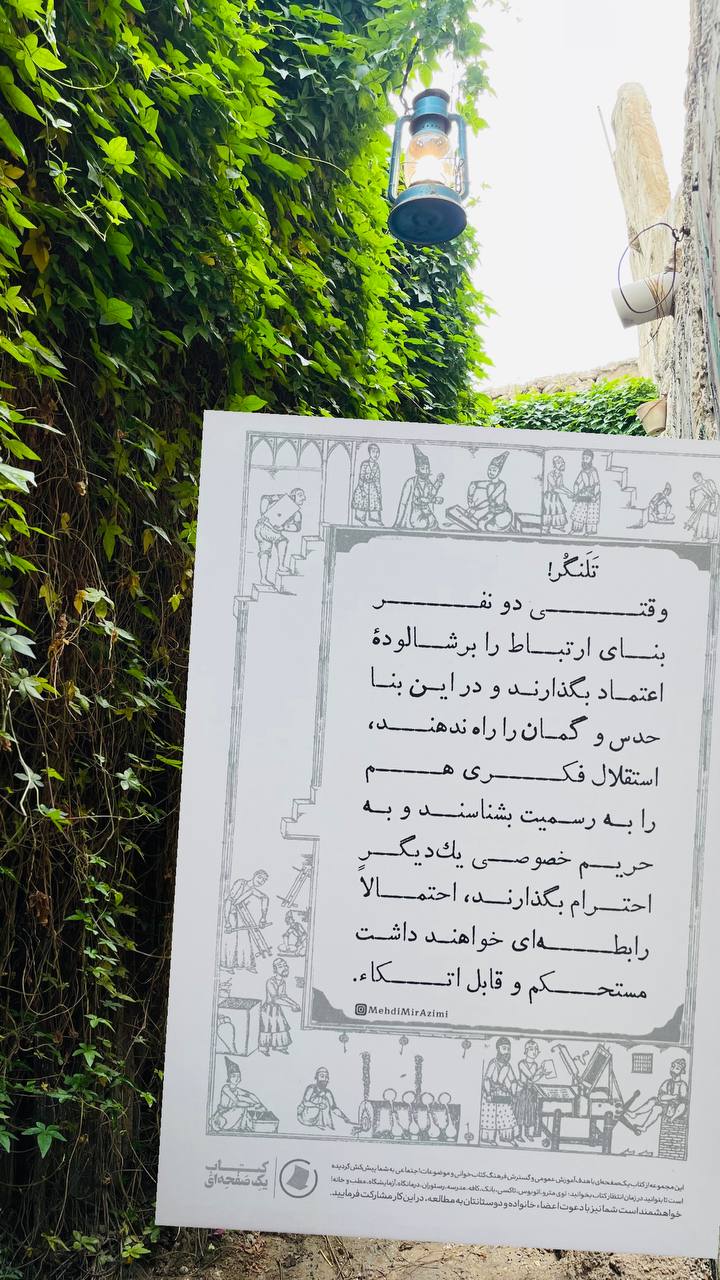 تَلَنگُر!
وقتی دو نفر
بنای ارتباط را برشالودهٔ
اعتماد بگذارند و در این بنا
حدس و گمان را راه ندهند،
استقلال فکری هم
را به رسمیت بشناسند و به
حریم خصوصی یك‌دیگر
احترام بگذارند، احتمالاً
رابطه‌ای خواهند داشت
مستحکم و قابل اتکاء.
MehdiMirAzimi
این مجموعه از کتاب یک صفحه‌ای با هدف آموزش عمومی و گسترش فرهنگ کتاب‌خوانی و موضوعات اجتماعی به شما پیش‌کش گردیده
است تا بتوانید در زمان انتظار کتاب بخوانید: توی مترو، اتوبوس، تاکسی، بانک، کافه، مدرسه، رستوران، درمانگاه، آزمایشگاه، مطب و خانه!
خواهشمند است شما نیز با دعوت اعضاء خانواده و دوستانتان به مطالعه، در این کار مشارکت فرمایید.
کتاب
یک صفحه‌ای